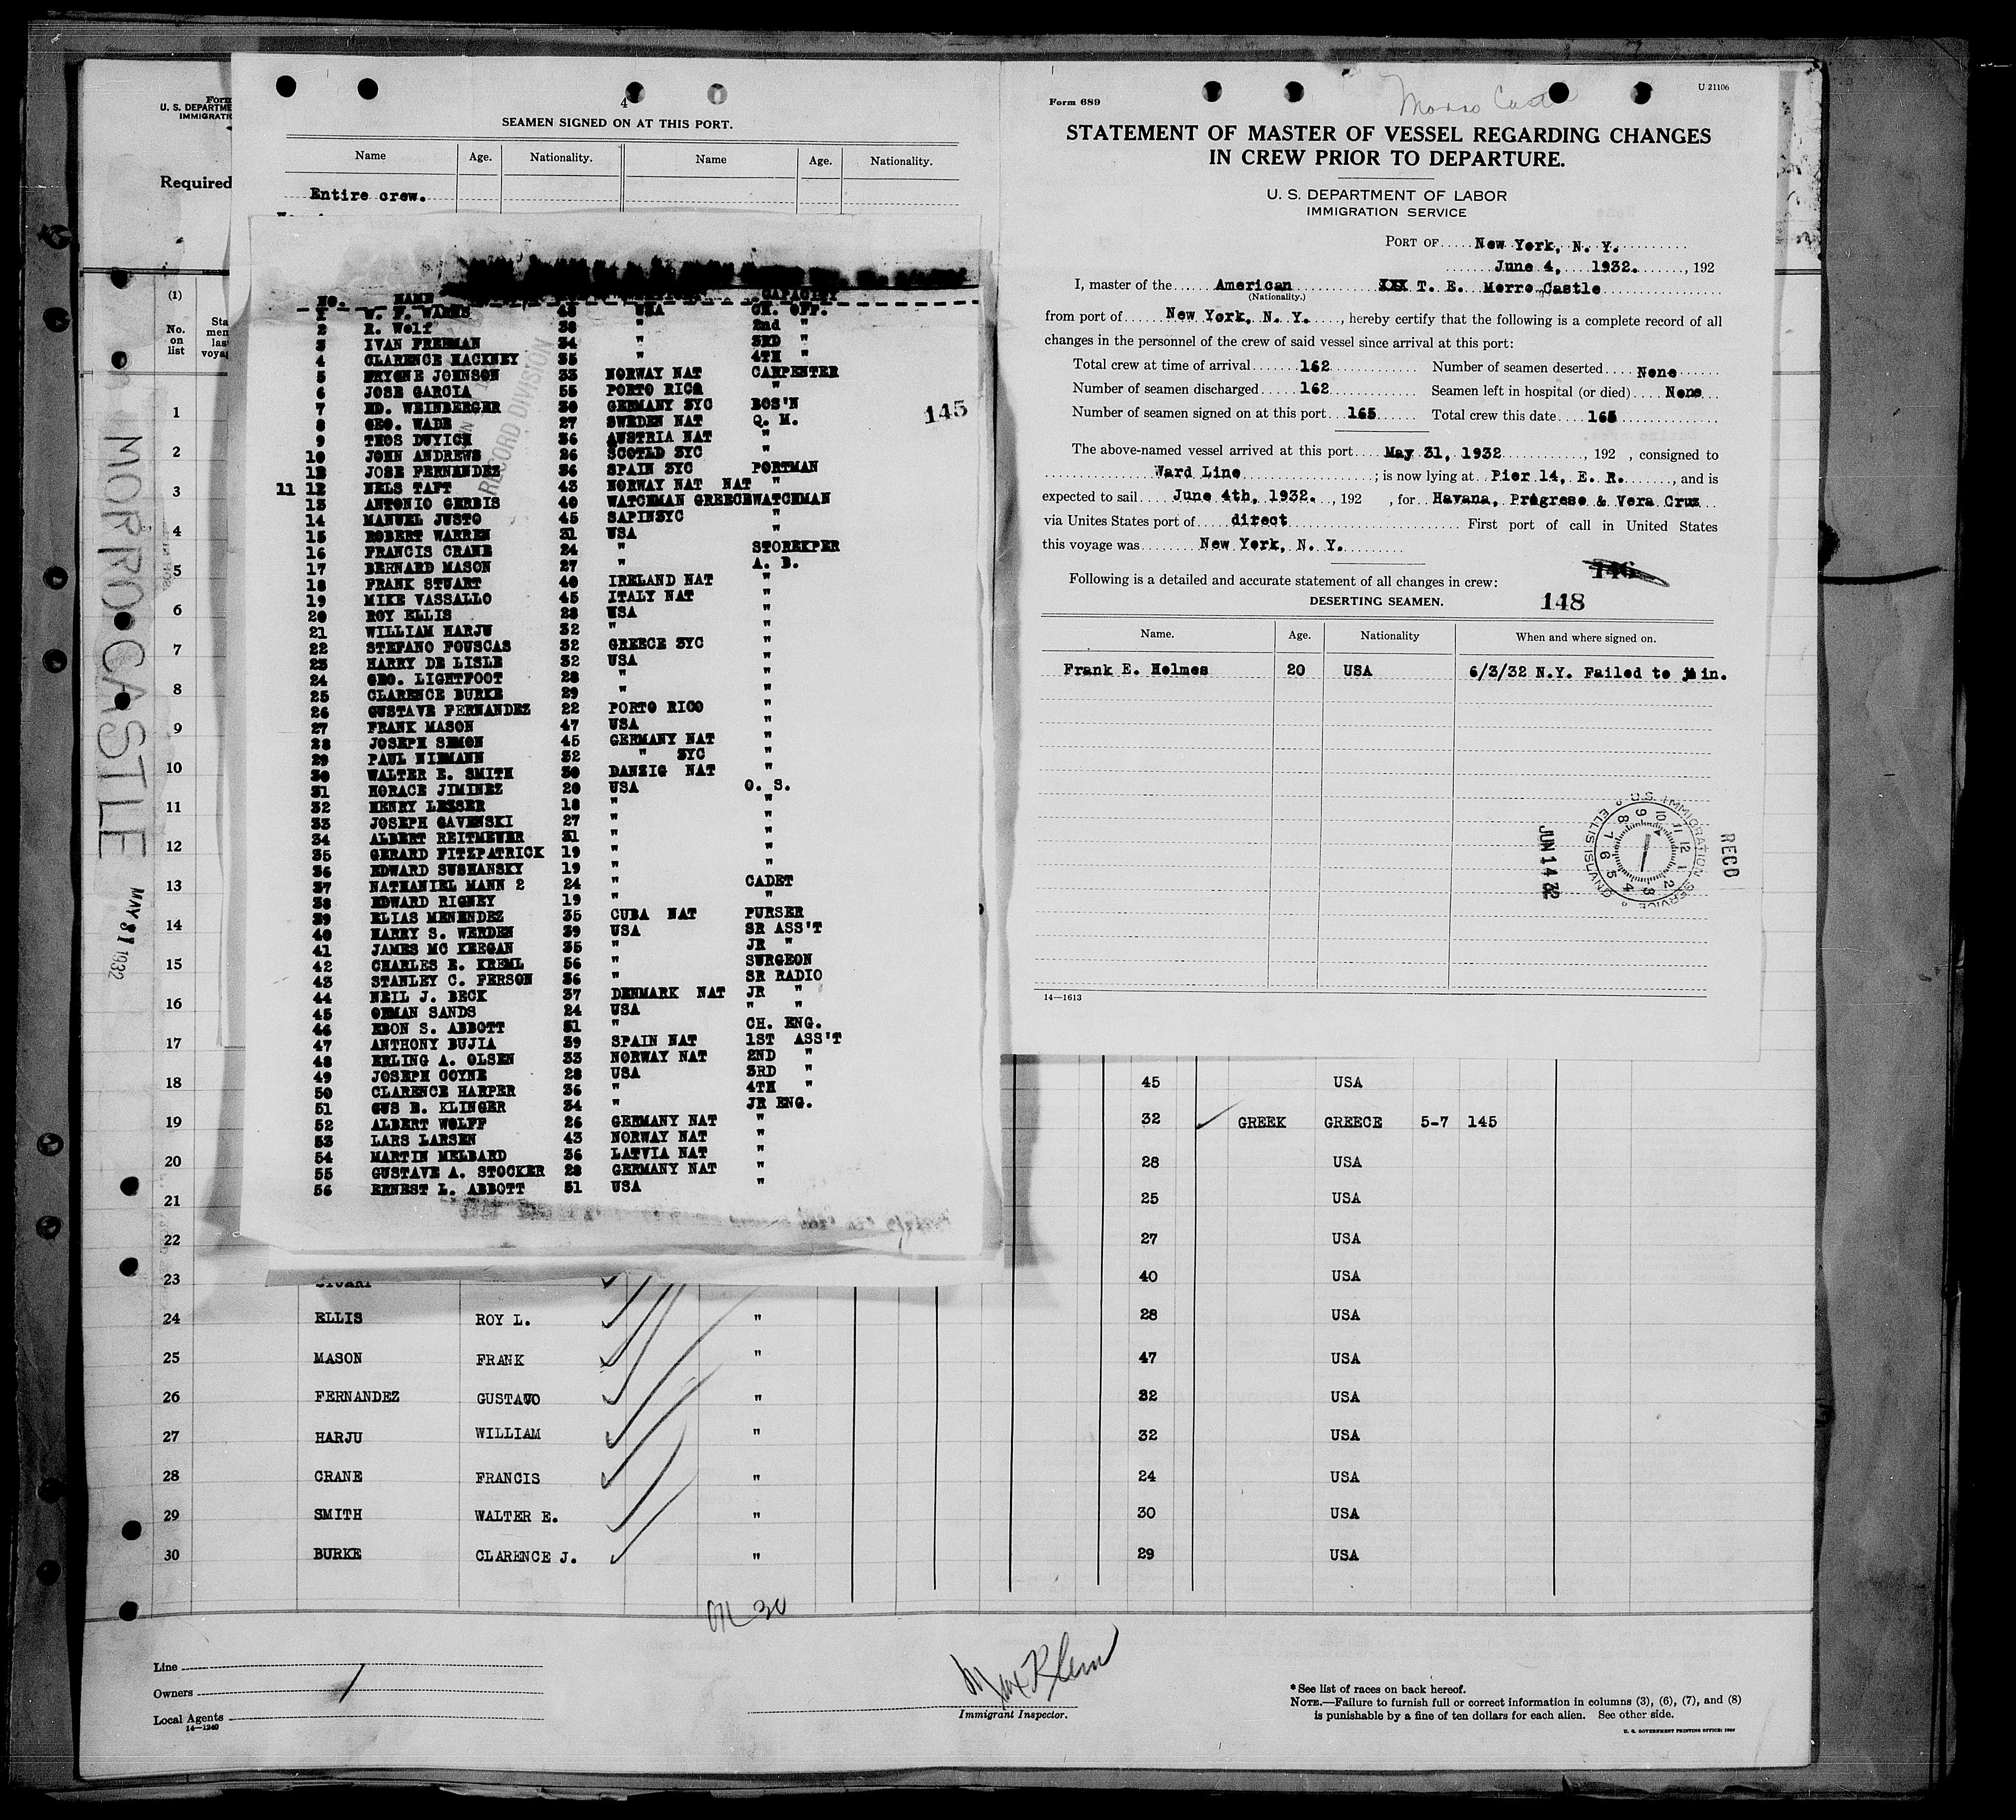 Form
U. S. DEPARTME
IMMIGRATIO
Required
(1)
No.
on
list
Sta
men
las
voyag
MORRO CASTLE
MAY 31 1932
4
SEAMEN SIGNED ON AT THIS PORT.
Name Age. Nationality. Name Age. Nationality.
Entire crew.
NO. NAME CAPACITY
1 W. F. WARMS 45 USA CH. OFF.
2 R. Wolf 38 " 2nd "
3 IVAN FREEMAN 34 " 3RD "
4 CLARENCE HACKNEY 35 " 4TH "
5 BRYGNE JOHNSON 33 NORWAY NAT CARPENTER
6 JOSE GARCIA 55 PORTO RICO "
7 ED. WEINBERGER 30 GERMANY 3YC BOS'N
8 GEO. WADE 27 SWEDEN NAT Q. M.
9 THOS DWYICH 36 AUSTRIA NAT "
10 JOHN ANDREWS 26 SCOTLD 3YC "
12 JOSE FERNANDEZ 36 SPAIN 3YC PORTMAN
11 12 NELS TAFT 43 NORWAY NAT NAT "
13 ANTONIO GERBIS 40 WATCHMAN GREECEWATCHMAN
14 MANUEL JUSTO 45 SAPIN3YC "
15 ROBERT WARREN 31 USA "
16 FRANCIS CRANE 24 " STOREKPER
17 BERNARD MASON 27 " A. B.
18 FRANK STUART 40 IRELAND NAT "
19 MIKE VASSALLO 45 ITALY NAT "
20 ROY ELLIS 28 USA "
21 WILLIAM HARJU 32 " "
22 STEFANO FOUSCAS 32 GREECE 3YC "
23 HARRY DE LISLE 32 USA "
24 GEO. LIGHTFOOT 28 " "
25 CLARENCE BURKE 29 " "
26 GUSTAVE FERNANDEZ 22 PORTO RICO "
27 FRANK MASON 47 USA "
28 JOSEPH SIMON 45 GERMANY NAT "
29 PAUL NIEMANN 32 " 3YC "
30 WALTER E. SMITH 30 DANZIG NAT "
31 HORACE JIMINEZ 20 USA O. S.
32 HENRY LESSER 18 " "
33 JOSEPH GAVENSKI 27 " "
34 ALBERT REITMEWER 31 " "
35 GERARD FITZPATRICK 19 " "
36 EDWARD SUSHANSKY 19 " "
37 NATHANIEL MANN 2 24 " CADET
38 EDWARD RIGNEY 19 " "
39 ELIAS MENENDEZ 35 CUBA NAT PURSER
40 HARRY S. WERDEN 39 USA SR ASS'T
41 JAMES MC KEEGAN 35 " JR "
42 CHARLES R. KREML 56 " SURGEON
43 STANLEY C. FERSON 36 " SR RADIO
44 NEIL J. BECK 37 DENMARK NAT JR "
45 ORMAN SANDS 24 USA " "
46 EBON S. ABBOTT 51 " CH. ENG.
47 ANTHONY BUJIA 39 SPAIN NAT 1ST ASS'T
48 ERLING A. OLSEN 33 NORWAY NAT 2ND "
49 JOSEPH COYNE 28 USA 3RD "
50 CLARENCE HARPER 36 " 4TH "
51 GUS B. KLINGER 34 " JR ENG.
52 ALBERT WOLFF 26 GERMANY NAT "
53 LARS LARSEN 43 NORWAY NAT "
54 MARTIN MELBARD 36 LATVIA NAT "
55 GUSTAVE A. STOCKER 28 GERMANY NAT "
56 ERNEST L. ABBOTT 51 USA "
145
RECORD DIVISION
U 21106
Form 689
Morro Castle
STATEMENT OF MASTER OF VESSEL REGARDING CHANGES
IN CREW PRIOR TO DEPARTURE.
U. S. DEPARTMENT OF LABOR
IMMIGRATION SERVICE
PORT OF New York, N. Y.
June 4, 1932. , 192
I, master of the American XXX T. E. Morro Castle
(Nationality.)
from port of New York, N. Y. , hereby certify that the following is a complete record of all
changes in the personnel of the crew of said vessel since arrival at this port:
Total crew at time of arrival 162 Number of seamen deserted None
Number of seamen discharged 162 Seamen left in hospital (or died) None
Number of seamen signed on at this port 165 Total crew this date 165
The above-named vessel arrived at this port May 31, 1932 , 192 , consigned to
Ward Line ; is now lying at Pier 14, E. R. , and is
expected to sail June 4th, 1932. , 192 , for Havana, Progreso & Vera Cruz
via Unites States port of direct First port of call in United States
this voyage was New York, N. Y.
Following is a detailed and accurate statement of all changes in crew:
146
DESERTING SEAMEN. 148
Name. Age. Nationality When and where signed on.
Frank E. Holmes 20 USA 6/3/32 N.Y. Failed to join.
RECD
U.S. IMMIGRATION SERVICE
ELLIS ISLAND
JUN 14 32
14—1613
1
2
3
4
5
6
7
8
9
10
11
12
13
14
15
16
17
18 45 USA
19 32 GREEK GREECE 5-7 145
20 28 USA
21 25 USA
22 27 USA
23 STUART 40 USA
24 ELLIS ROY L. " 28 USA
25 MASON FRANK " 47 USA
26 FERNANDEZ GUSTAVO " 32 USA
27 HARJU WILLIAM " 32 USA
28 CRANE FRANCIS " 24 USA
29 SMITH WALTER E. " 30 USA
30 BURKE CLARENCE J. " 29 USA
OK 30
Line
Owners
Local Agents
14—1240
Max Klein
Immigrant Inspector.
* See list of races on back hereof.
NOTE.—Failure to furnish full or correct information in columns (3), (6), (7), and (8)
is punishable by a fine of ten dollars for each alien. See other side.
U. S. GOVERNMENT PRINTING OFFICE: 1929